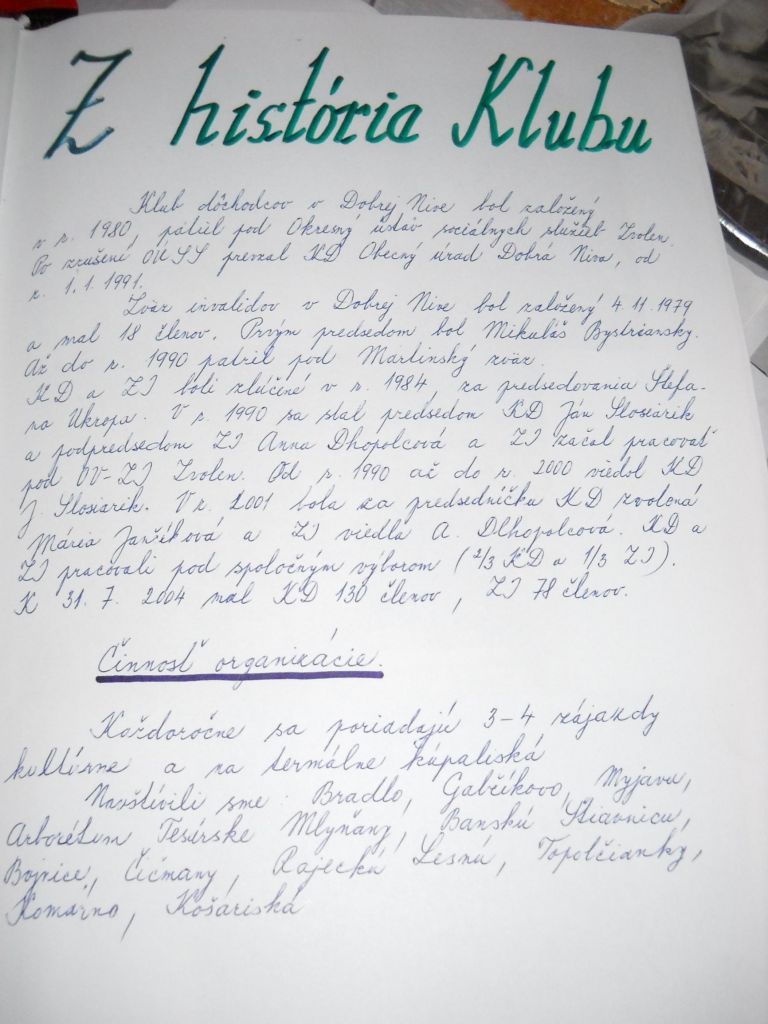 Z história Klubu
Klub dôchodcov v Dobrej Nive bol založený
v r. 1980, patril pod Okresný ústav sociálnych služieb Zvolen.
Po zrušení OÚSS prevzal KD Obecný úrad Dobrá Niva, od
r. 1.1.1991.
Zväz invalidov v Dobrej Nive bol založený 4.11.1979
a mal 18 členov. Prvým predsedom bol Mikuláš Bystriansky.
Až do r. 1990 patril pod Martinský zväz.
KD a ZI boli zlúčené v r. 1984, za predsedovania Štefa-
na Ukropa. V r. 1990 sa stal predsedom KD Ján Slosiarik
a podpredsedom ZI Anna Dhopolcová a ZI začal pracovať
pod OV-ZI Zvolen. Od r. 1990 až do r. 2000 viedol KD
J. Slosiarik. V r. 2001 bola za predsedničku KD zvolená
Mária Jančíková a ZI viedla A. Dlhopolcová. KD a
ZI pracovali pod spoločným výborom (2/3 KD a 1/3 ZI).
K 31. 7. 2004 mal KD 130 členov, ZI 78 členov.
Činnosť organizácie.
Každoročne sa poriadajú 3-4 zájazdy
kultúrne a na termálne kúpaliská
Navštívili sme: Bradlo, Gabčíkovo, Myjavu,
Arborétum Tesárske Mlyňany, Banskú Štiavnicu,
Bojnice, Čičmany, Rajeckú Lesnú, Topolčianky,
Komárno, Košariská